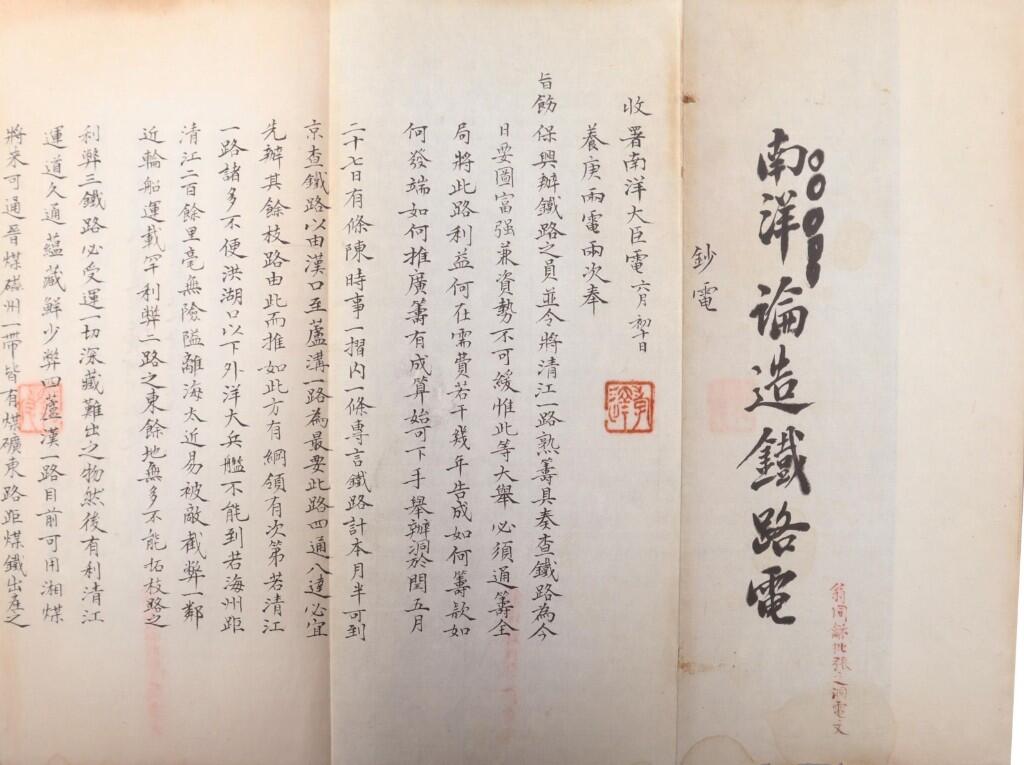 翁同龢批張之洞電文
南洋論造鐵路電
鈔電
收署南洋大臣電六月初十日
養庚兩電兩次奉
旨飭保興辦鐵路之員並令將清江一路熟籌具奏查鐵路為今
日要圖富强兼資勢不可緩惟此等大舉必須通籌全
局將此路利益何在需費若干幾年告成如何籌款如
何發端如何推廣籌有成算始可下手舉辦洞於閏五月
二十七日有條陳時事一摺內一條專言鐵路計本月半可到
京查鐵路以由漢口至蘆溝一路為最要此路四通八達必宜
先辦其餘枝路由此而推如此方有綱領有次第若清江
一路諸多不便洪湖口以下外洋大兵艦不能到若海州距
清江二百餘里毫無險隘離海太近易被敵截弊一鄰
近輪船運載罕利弊二路之東餘地無多不能拓枝路之
利弊三鐵路必受運一切深藏難出之物然後有利清江
運道久通蘊藏鮮少弊四蘆漢一路目前可用湘煤
將來可通晉煤磁州一帶皆有煤礦東路距煤鐵出產之